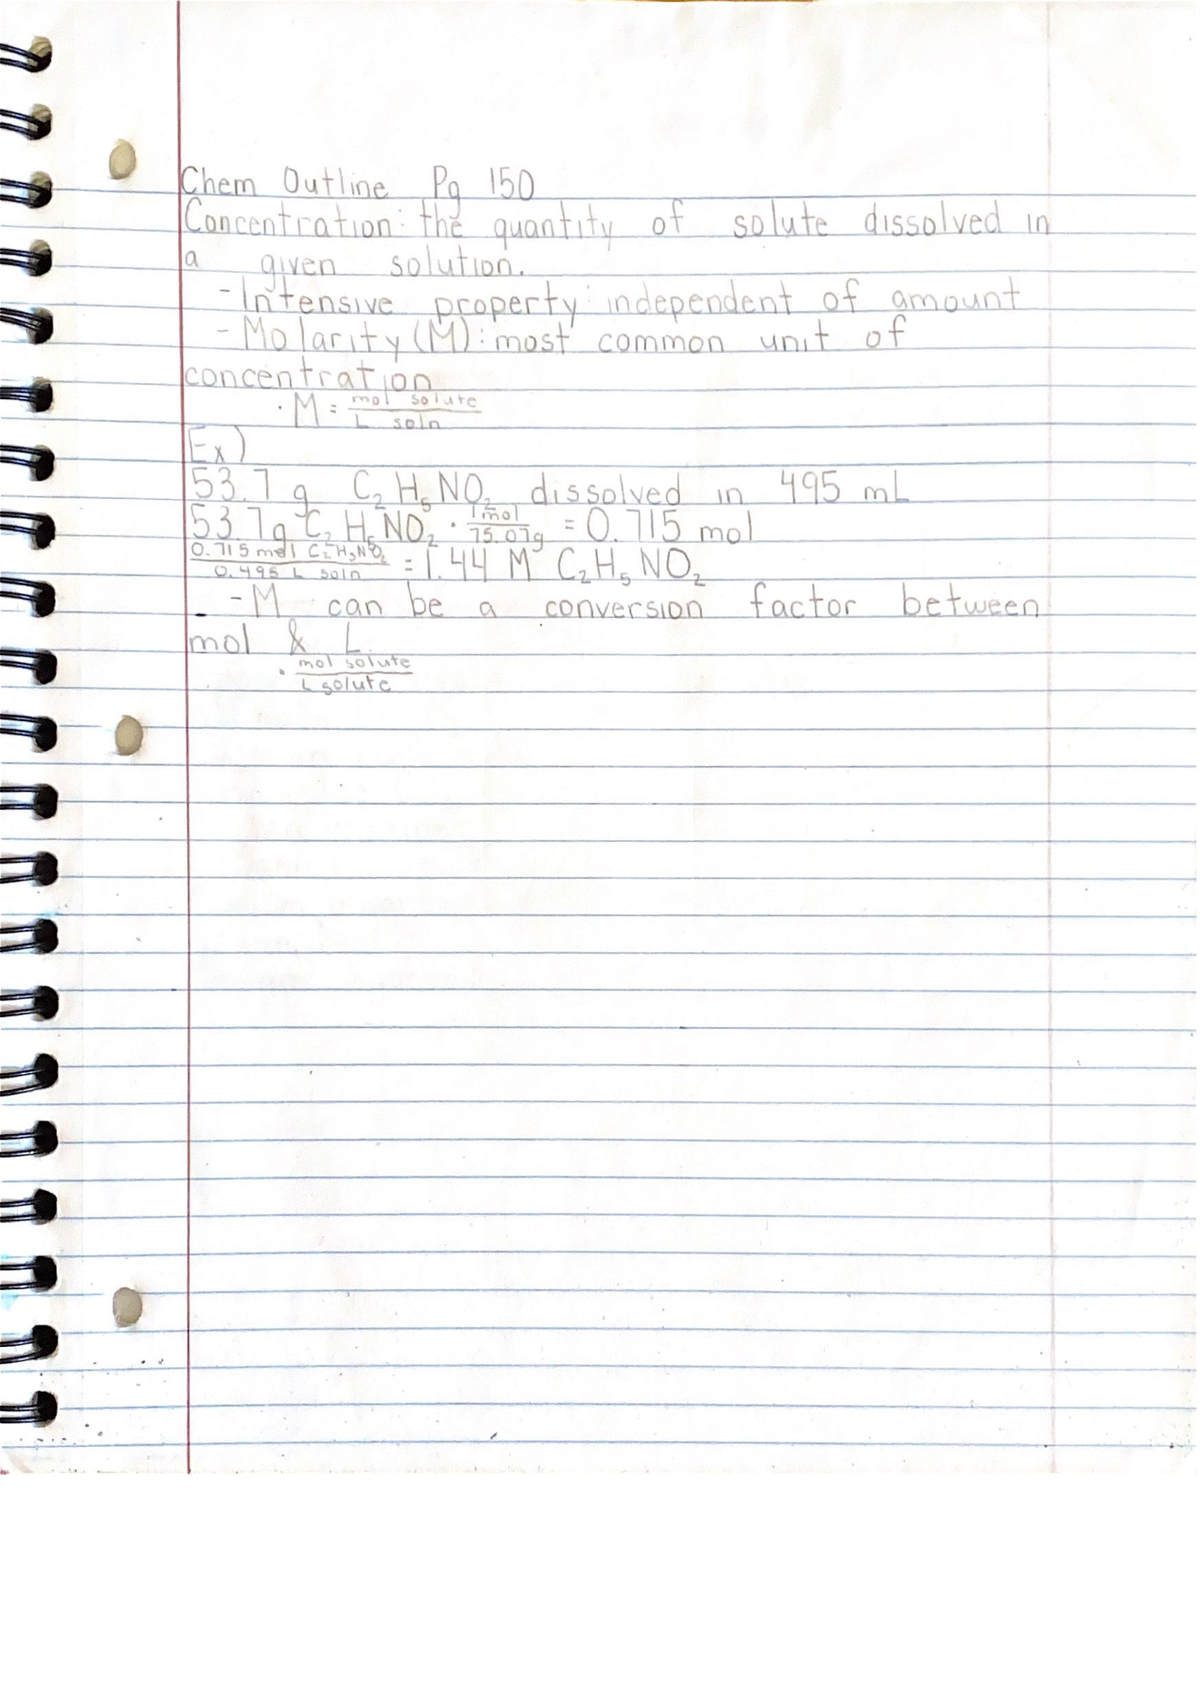 Chem Outline Pg 150
Concentration: the quantity of solute dissolved in
a given solution.
- Intensive property: independent of amount
- Molarity (M): most common unit of
concentration
· M = mol solute / L soln
Ex)
53.7 g C₂H₅NO₂ dissolved in 495 mL
53.7g C₂H₅NO₂ · 1mol / 75.07g = 0.715 mol
0.715 mol C₂H₅NO₂ / 0.495 L soln = 1.44 M C₂H₅NO₂
- M can be a conversion factor between
mol & L
· mol solute / L solute